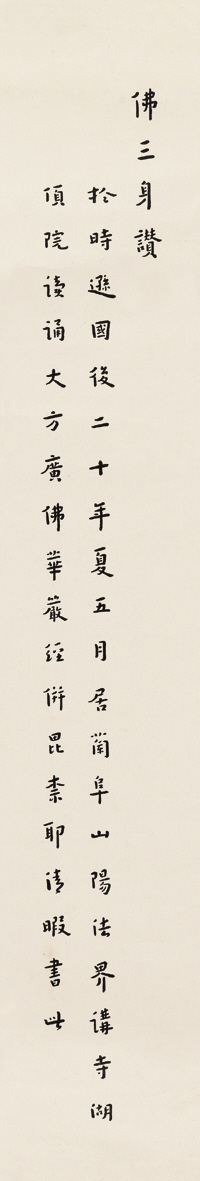 佛三身讚
於時遜國後二十年夏五月居蘭阜山陽法界講寺湖
頂院读誦大方廣佛華嚴經併毘柰耶清暇書此